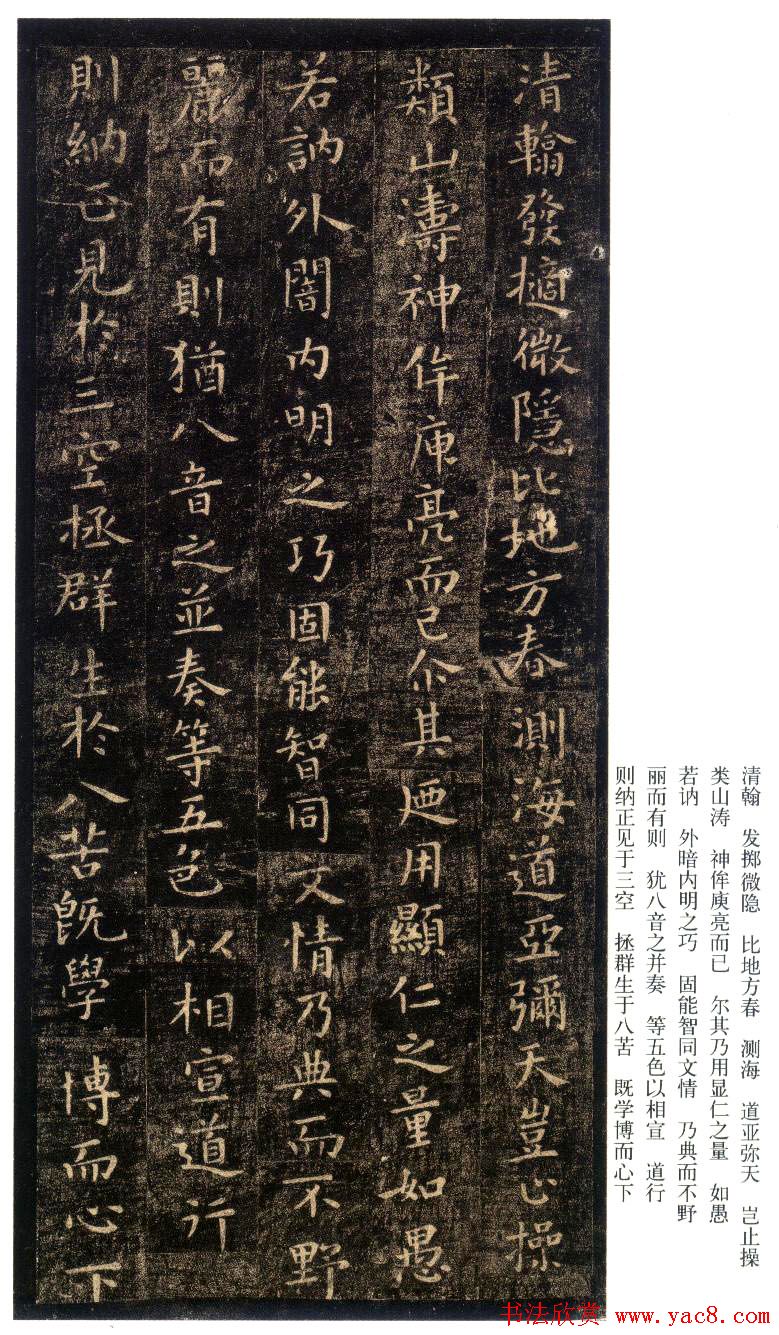 清翰發擿微隱比地方春測海道亞彌天豈止操
類山濤神侔庾亮而已尒其迺用顯仁之量如愚
若訥外闇内明之巧固能智同文情乃典而不野
麗而有則猶八音之並奏等五色以相宣道行
則納正見於三空拯群生於八苦既學博而心下
清翰 发掷微隐 比地方春 测海 道亚弥天 岂止操
类山涛 神侔庾亮而已 尔其乃用显仁之量 如愚
若讷 外暗内明之巧 固能智同文情 乃典而不野
丽而有则 犹八音之并奏 等五色以相宣 道行
则纳正见于三空 拯群生于八苦 既学博而心下
书法欣赏 www.yac8.com